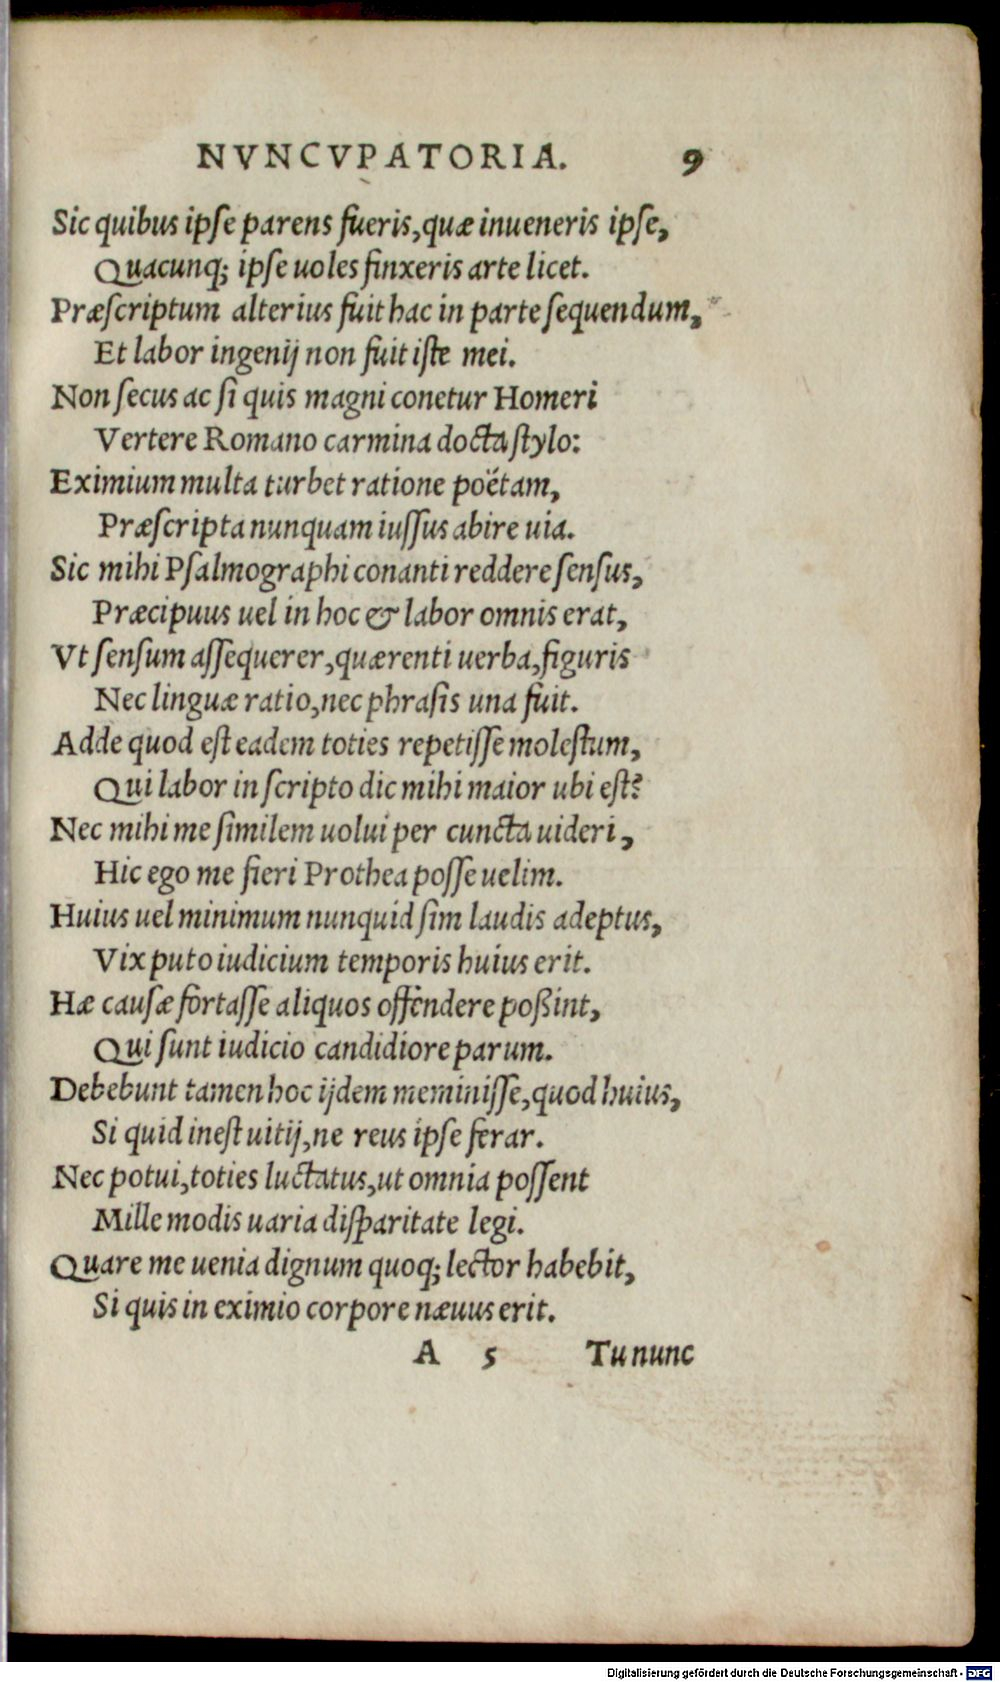 NVNCVPATORIA. 9
Sic quibus ipſe parens fueris, quæ inueneris ipſe,
Quacunq; ipſe uoles finxeris arte licet.
Præſcriptum alterius fuit hac in parte ſequendum,
Et labor ingenij non fuit iſte mei.
Non ſecus ac ſi quis magni conetur Homeri
Vertere Romano carmina docta ſtylo:
Eximium multa turbet ratione poëtam,
Præſcripta nunquam iuſſus abire uia.
Sic mihi Pſalmographi conanti reddere ſenſus,
Præcipuus uel in hoc & labor omnis erat,
Vt ſenſum aſſequerer, quærenti uerba, figuris
Nec linguæ ratio, nec phraſis una fuit.
Adde quod eſt eadem toties repetiſſe moleſtum,
Qui labor in ſcripto dic mihi maior ubi eſt?
Nec mihi me ſimilem uolui per cuncta uideri,
Hic ego me fieri Prothea poſſe uelim.
Huius uel minimum nunquid ſim laudis adeptus,
Vix puto iudicium temporis huius erit.
Hæ cauſæ fortaſſe aliquos offendere poßint,
Qui ſunt iudicio candidiore parum.
Debebunt tamen hoc ijdem meminiſſe, quod huius,
Si quid ineſt uitij, ne reus ipſe ferar.
Nec potui, toties luctatus, ut omnia poſſent
Mille modis uaria diſparitate legi.
Quare me uenia dignum quoq; lector habebit,
Si quis in eximio corpore næuus erit.
A 5 Tu nunc
Digitalisierung gefördert durch die Deutsche Forschungsgemeinschaft - DFG